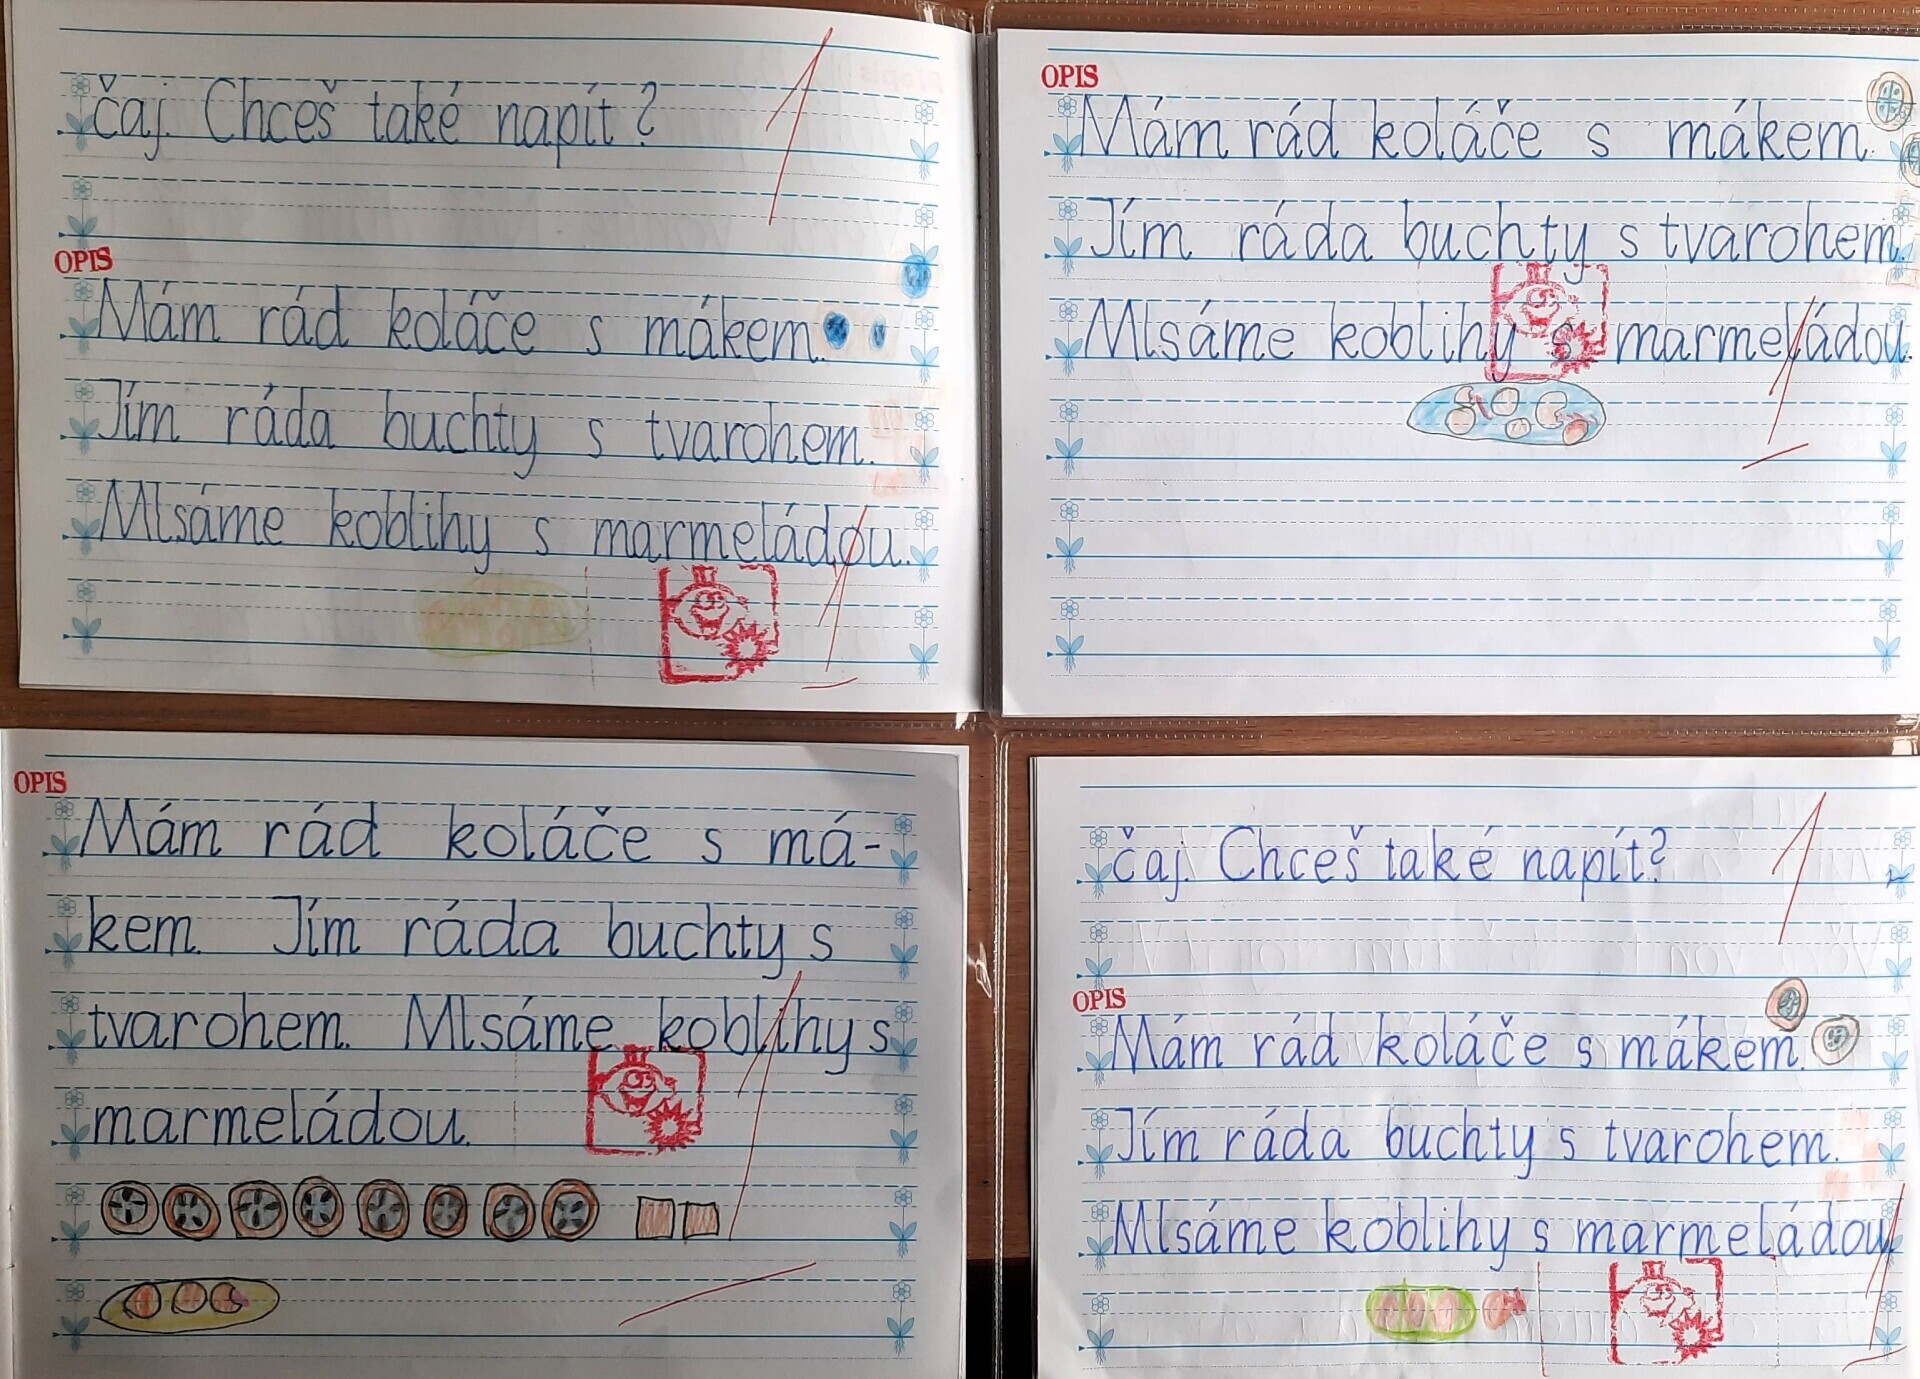 čaj. Chceš také napít?
OPIS
Mám rád koláče s mákem.
Jím ráda buchty s tvarohem.
Mlsáme koblihy s marmeládou.
OPIS
Mám rád koláče s mákem.
Jím ráda buchty s tvarohem.
Mlsáme koblihy s marmeládou.
OPIS
Mám rád koláče s má-
kem. Jím ráda buchty s
tvarohem. Mlsáme koblihy s
marmeládou.
čaj. Chceš také napít?
OPIS
Mám rád koláče s mákem.
Jím ráda buchty s tvarohem.
Mlsáme koblihy s marmeládou